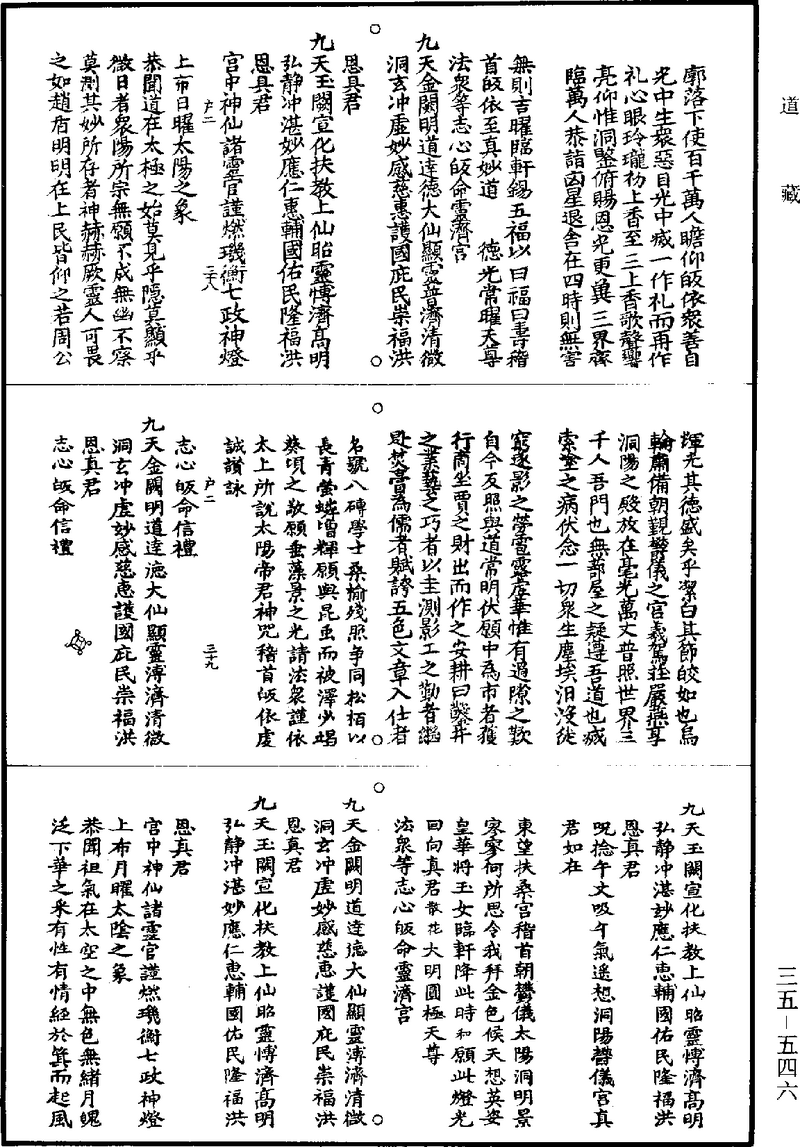 道藏
廓落下使百千萬人瞻仰皈依衆善自
光中生衆惡目光中滅一作礼而再作
礼心眼玲瓏初上香至三上香歌聲響
亮仰惟洞鑒俯賜恩光更冀三界齊
臨萬人恭詣凶星退舍在四時則無害
無則吉曜臨軒錫五福以曰福曰壽稽
首皈依至真妙道 德光常曜天尊
法衆等志心皈命靈濟宫
九天金闕明道達德大仙顯靈普濟清微
洞玄冲虚妙感慈惠護國庇民崇福洪
恩真君
九天玉闕宣化扶教上仙昭靈博濟高明
弘静冲湛妙應仁惠輔國佑民隆福洪
恩真君
宫中神仙諸靈官謹燃璣衡七政神燈
户二 三十八
上布日曜太陽之象
恭聞道在太極之始莫見乎隱莫顯乎
微日者衆陽所宗無願不成無幽不察
莫測其妙所存者神赫赫厥靈人可畏
之如趙盾明明在上民皆仰之若周公
煇光其德盛矣乎潔白其飾皎如也烏
輪肅備朝覲欝儀之宫羲駕莊嚴燕享
洞陽之殿放在毫光萬丈普照世界三
千人吾門也無蔀屋之疑遵吾道也滅
索塗之病伏念一切衆生塵埃汨没徙
窮逐影之勞雪靈虚華惟有過隙之歎
自今反照與道常明伏願中為市者獲
行商坐賈之財出而作之安耕田鑿井
之業藝之巧者以圭測影工之勤者繼
晷焚膏為儒者賦誇五色文章入仕者
名號八磚學士桑榆殘照争同松栢以
長青螢燐增輝願與昆虫而被澤少竭
葵頃之敬願垂藻景之光請法衆謹依
太上所説太陽帝君神咒稽首皈依虔
誠讃詠
户二 三十九
志心皈命信禮
九天金闕明道達德大仙顯靈溥濟清微
洞玄冲虚妙感慈惠護國庇民崇福洪
恩真君
志心皈命信禮
九天玉闕宣化扶教上仙昭靈博濟高明
弘静冲湛妙應仁惠輔國佑民隆福洪
恩真君
呪捻午文吸午氣遥想洞陽欝儀宫真
君如在
東望扶桑宫稽首朝欝儀太陽洞明景
寥寥何所思令我拜金色候天想英姿
皇華將玉女臨軒降此時和願此燈光
回向真君散花大明圓極天尊
法衆等志心皈命靈濟宫
九天金闕明道達德大仙顯靈溥濟清微
洞玄冲虚妙感慈惠護國庇民崇福洪
恩真君
九天玉闕宣化扶教上仙昭靈博濟高明
弘静冲湛妙應仁惠輔國佑民隆福洪
恩真君
宫中神仙諸靈官謹燃璣衡七政神燈
上布月曜太陰之象
恭聞祖氣在太空之中無色無緒月魄
泛下華之采有性有情經於箕而起風
三五－五四六